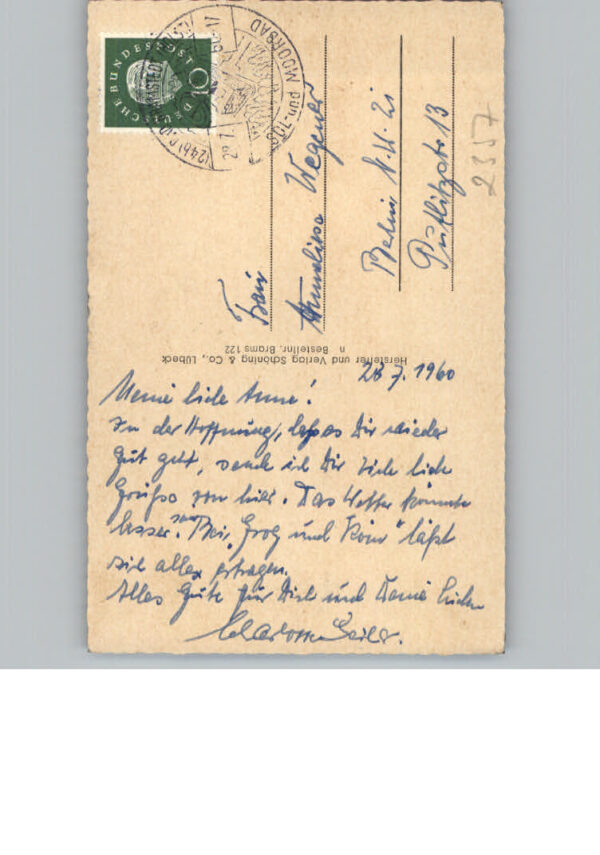 DEUTSCHE BUNDESPOST
10
SOL- und MOORBAD
(24b)
Frau
Anneliese Wegener
Berlin N.W. 21
Putlitzstr. 13
2357
Hersteller und Verlag Schöning & Co., Lübeck
n Bestellnr. Brams 122
28.7.1960
Meine liebe Anne!
In der Hoffnung, daß es Dir wieder
gut geht, sende ich Dir viele liebe
Grüße von hier. Das Wetter könnte
besser sein. Bei "Grog und Köm" läßt
sich alles ertragen.
Alles Gute für Dich und Deine Lieben